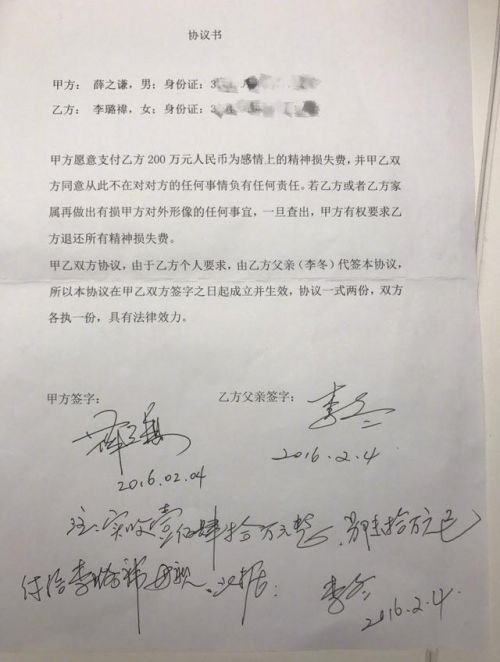 协议书
甲方: 薛之谦,男;身份证:3
乙方: 李璐禕,女;身份证:3
甲方愿意支付乙方 200 万元人民币为感情上的精神损失费,并甲乙双
方同意从此不在对对方的任何事情负有任何责任。若乙方或者乙方家
属再做出有损甲方对外形像的任何事宜,一旦查出,甲方有权要求乙
方退还所有精神损失费。
甲乙双方协议,由于乙方个人要求,由乙方父亲(李冬)代签本协议,
所以本协议在甲乙双方签字之日起成立并生效,协议一式两份,双方
各执一份,具有法律效力。
甲方签字: 乙方父亲签字:
薛之谦 李冬
2016.02.04 2016.2.4
注:实收壹佰肆拾万元整,另陆拾万元已
付给李璐禕母亲.此据: 李冬
2016.2.4.